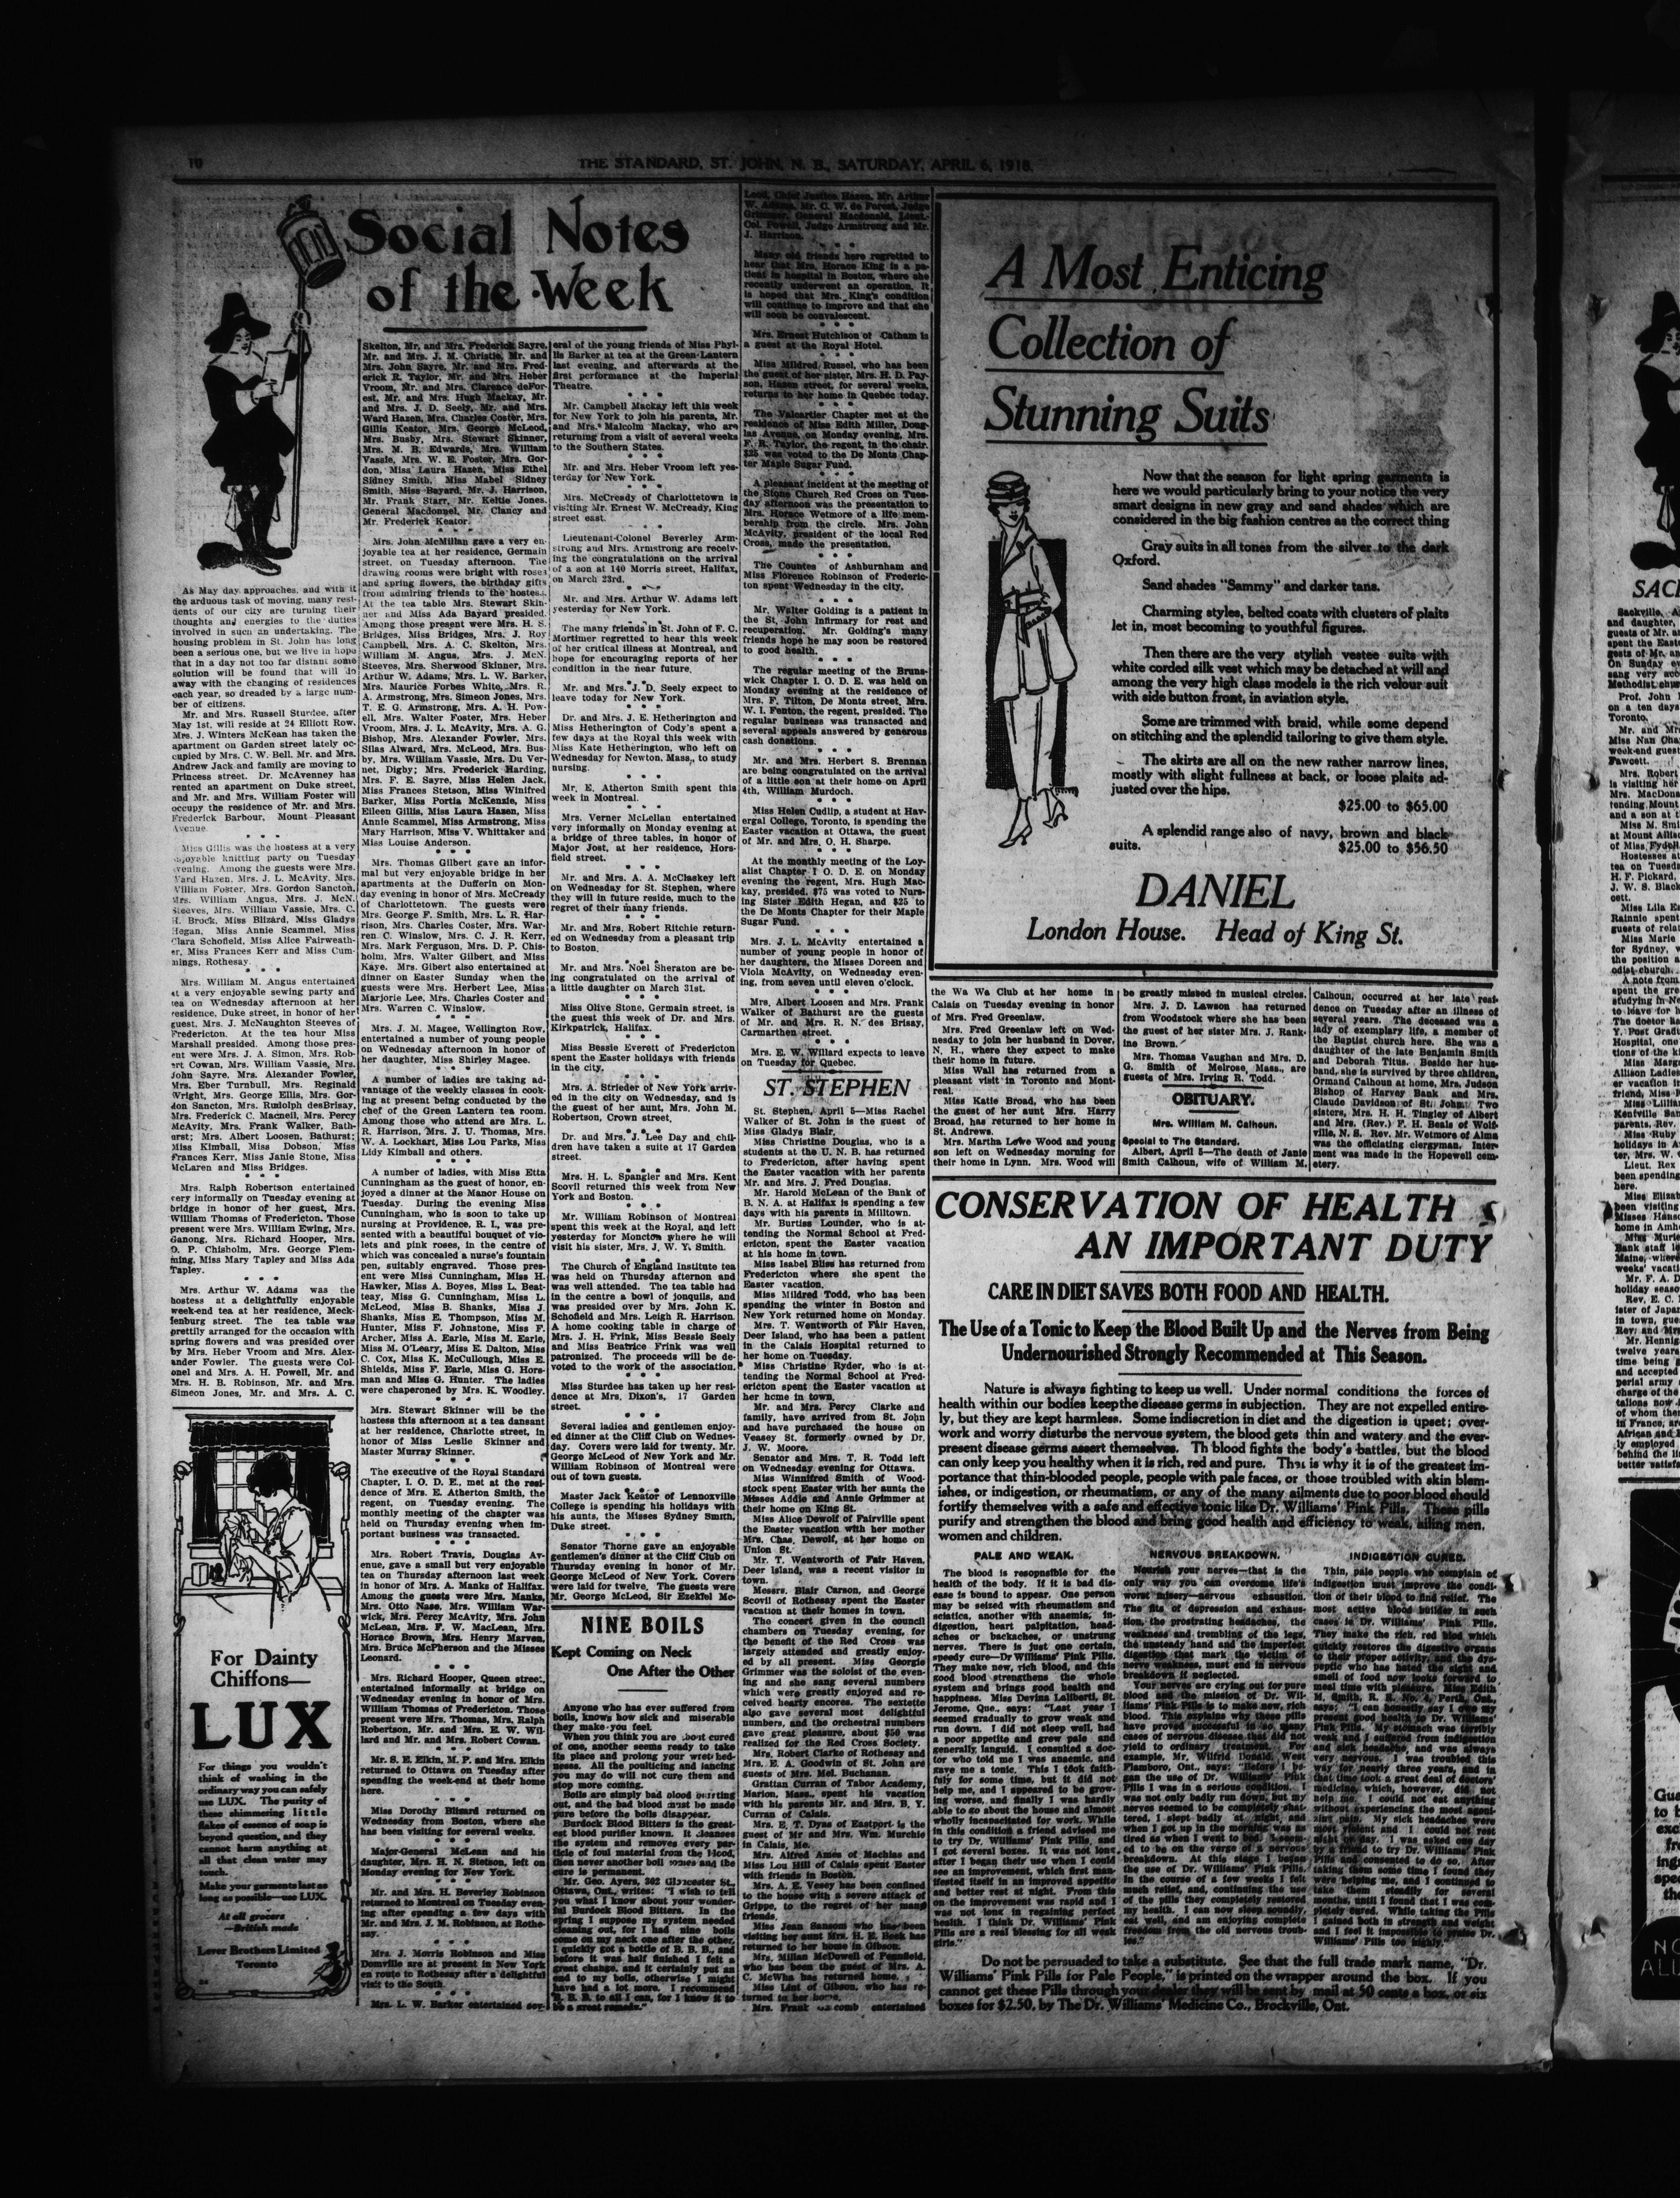 10
THE STANDARD, ST. JOHN, N. B., SATURDAY, APRIL 6, 1918.
Social Notes
of the Week
As May day approaches, and with it
the arduous task of moving, many resi-
dents of our city are turning their
thoughts and energies to the duties
involved in such an undertaking. The
housing problem in St. John has long
been a serious one, but we live in hope
that in a day not too far distant some
solution will be found that will do
away with the changing of residences
each year, so dreaded by a large num-
ber of citizens.
Mr. and Mrs. Russell Sturdee, after
May 1st, will reside at 24 Elliott Row.
Mrs. J. Winters McKean has taken the
apartment on Garden street lately oc-
cupied by Mrs. C. W. Bell. Mr. and Mrs.
Andrew Jack and family are moving to
Princess street. Dr. McAvenney has
rented an apartment on Duke street,
and Mr. and Mrs. William Foster will
occupy the residence of Mr. and Mrs.
Frederick Barbour, Mount Pleasant
Avenue.
Miss Gillis was the hostess at a very
enjoyable knitting party on Tuesday
evening. Among the guests were Mrs.
Ward Hazen, Mrs. J. L. McAvity, Mrs.
William Foster, Mrs. Gordon Sancton,
Mrs. William Angus, Mrs. J. McN.
Steeves, Mrs. William Vassie, Mrs. C.
H. Brock, Miss Blizard, Miss Gladys
Hegan, Miss Annie Scammel, Miss
Clara Schofield, Miss Alice Fairweath-
er, Miss Frances Kerr and Miss Cum-
mings, Rothesay.
Mrs. William M. Angus entertained
at a very enjoyable sewing party and
tea on Wednesday afternoon at her
residence, Duke street, in honor of her
guest, Mrs. J. McNaughton Steeves of
Fredericton. At the tea hour Miss
Marshall presided. Among those pres-
ent were Mrs. J. A. Simon, Mrs. Rob-
ert Cowan, Mrs. William Vassie, Mrs.
John Sayre, Mrs. Alexander Fowler,
Mrs. Eber Turnbull, Mrs. Reginald
Wright, Mrs. George Ellis, Mrs. Gor-
don Sancton, Mrs. Rudolph desBrisay,
Mrs. Frederick C. Macneil, Mrs. Percy
McAvity, Mrs. Frank Walker, Bath-
urst; Mrs. Albert Loosen, Bathurst;
Miss Kimball, Miss Dobson, Miss
Frances Kerr, Miss Janie Stone, Miss
McLaren and Miss Bridges.
Mrs. Ralph Robertson entertained
very informally on Tuesday evening at
bridge in honor of her guest, Mrs.
William Thomas of Fredericton. Those
present were Mrs. William Ewing, Mrs.
Ganong, Mrs. Richard Hooper, Mrs.
O. P. Chisholm, Mrs. George Flem-
ming, Miss Mary Tapley and Miss Ada
Tapley.
Mrs. Arthur W. Adams was the
hostess at a delightfully enjoyable
week-end tea at her residence, Meck-
lenburg street. The tea table was
prettily arranged for the occasion with
spring flowers and was presided over
by Mrs. Heber Vroom and Mrs. Alex-
ander Fowler. The guests were Col-
onel and Mrs. A. H. Powell, Mr. and
Mrs. H. B. Robinson, Mr. and Mrs.
Simeon Jones, Mr. and Mrs. A. C.
For Dainty
Chiffons—
LUX
For things you wouldn't
think of washing in the
ordinary way you can safely
use LUX. The purity of
these shimmering little
flakes of essence of soap is
beyond question, and they
cannot harm anything at
all that clean water may
touch.
Make your garments last as
long as possible—use LUX.
At all grocers
—British made
Lever Brothers Limited
Toronto
Skelton, Mr. and Mrs. Frederick Sayre,
Mr. and Mrs. J. M. Christie, Mr. and
Mrs. John Sayre, Mr. and Mrs. Fred-
erick R. Taylor, Mr. and Mrs. Heber
Vroom, Mr. and Mrs. Clarence deFor-
est, Mr. and Mrs. Hugh Mackay, Mr.
and Mrs. J. D. Seely, Mr. and Mrs.
Ward Hazen, Mrs. Charles Coster, Mrs.
Gillis Keator, Mrs. George McLeod,
Mrs. Busby, Mrs. Stewart Skinner,
Mrs. M. B. Edwards, Mrs. William
Vassie, Mrs. W. E. Foster, Mrs. Gor-
don, Miss Laura Hazen, Miss Ethel
Sidney Smith, Miss Mabel Sidney
Smith, Miss Bayard, Mr. J. Harrison,
Mr. Frank Starr, Mr. Keltie Jones,
General Macdonnel, Mr. Clancy and
Mr. Frederick Keator.
Mrs. John McMillan gave a very en-
joyable tea at her residence, Germain
street, on Tuesday afternoon. The
drawing rooms were bright with roses
and spring flowers, the birthday gifts
from admiring friends to the hostess.
At the tea table Mrs. Stewart Skin-
ner and Miss Ada Bayard presided.
Among those present were Mrs. H. S.
Bridges, Miss Bridges, Mrs. J. Roy
Campbell, Mrs. A. C. Skelton, Mrs.
William M. Angus, Mrs. J. McN.
Steeves, Mrs. Sherwood Skinner, Mrs.
Arthur W. Adams, Mrs. L. W. Barker,
Mrs. Maurice Forbes White, Mrs. R.
A. Armstrong, Mrs. Simeon Jones, Mrs.
T. E. G. Armstrong, Mrs. A. H. Pow-
ell, Mrs. Walter Foster, Mrs. Heber
Vroom, Mrs. J. L. McAvity, Mrs. A. G.
Bishop, Mrs. Alexander Fowler, Mrs.
Silas Alward, Mrs. McLeod, Mrs. Bus-
by, Mrs. William Vassie, Mrs. Du Ver-
net, Digby; Mrs. Frederick Harding,
Mrs. F. E. Sayre, Miss Helen Jack,
Miss Frances Stetson, Miss Winifred
Barker, Miss Portia McKenzie, Miss
Eileen Gillis, Miss Laura Hazen, Miss
Annie Scammel, Miss Armstrong, Miss
Mary Harrison, Miss V. Whittaker and
Miss Louise Anderson.
Mrs. Thomas Gilbert gave an infor-
mal but very enjoyable bridge in her
apartments at the Dufferin on Mon-
day evening in honor of Mrs. McCready
of Charlottetown. The guests were
Mrs. George F. Smith, Mrs. L. R. Har-
rison, Mrs. Charles Coster, Mrs. War-
ren C. Winslow, Mrs. C. J. R. Kerr,
Mrs. Mark Ferguson, Mrs. D. P. Chis-
holm, Mrs. Walter Gilbert, and Miss
Kaye. Mrs. Gibert also entertained at
dinner on Easter Sunday when the
guests were Mrs. Herbert Lee, Miss
Marjorie Lee, Mrs. Charles Coster and
Mrs. Warren C. Winslow.
Mrs. J. M. Magee, Wellington Row,
entertained a number of young people
on Wednesday afternoon in honor of
her daughter, Miss Shirley Magee.
A number of ladies are taking ad-
vantage of the weekly classes in cook-
ing at present being conducted by the
chef of the Green Lantern tea room.
Among those who attend are Mrs. L.
R. Harrison, Mrs. J. U. Thomas, Mrs.
W. A. Lockhart, Miss Lou Parks, Miss
Lidy Kimball and others.
A number of ladies, with Miss Etta
Cunningham as the guest of honor, en-
joyed a dinner at the Manor House on
Tuesday. During the evening Miss
Cunningham, who is soon to take up
nursing at Providence, R. I., was pre-
sented with a beautiful bouquet of vio-
lets and pink roses, in the centre of
which was concealed a nurse's fountain
pen, suitably engraved. Those pres-
ent were Miss Cunningham, Miss H.
Hawker, Miss A. Boyes, Miss L. Beat-
teay, Miss G. Cunningham, Miss L.
McLeod, Miss B. Shanks, Miss J.
Shanks, Miss E. Thompson, Miss M.
Hunter, Miss F. Johnstone, Miss F.
Archer, Miss A. Earle, Miss M. Earle,
Miss M. O'Leary, Miss E. Dalton, Miss
C. Cox, Miss K. McCullough, Miss E.
Shields, Miss F. Earle, Miss G. Hors-
man and Miss G. Hunter. The ladies
were chaperoned by Mrs. K. Woodley.
Mrs. Stewart Skinner will be the
hostess this afternoon at a tea dansant
at her residence, Charlotte street, in
honor of Miss Leslie Skinner and
Master Murray Skinner.
The executive of the Royal Standard
Chapter, I. O. D. E., met at the resi-
dence of Mrs. E. Atherton Smith, the
regent, on Tuesday evening. The
monthly meeting of the chapter was
held on Thursday evening when im-
portant business was transacted.
Mrs. Robert Travis, Douglas Av-
enue, gave a small but very enjoyable
tea on Thursday afternoon last week
in honor of Mrs. A. Manks of Halifax.
Among the guests were Mrs. Manks,
Mrs. Otto Nase, Mrs. William War-
wick, Mrs. Percy McAvity, Mrs. John
McLean, Mrs. F. W. MacLean, Mrs.
Horace Brown, Mrs. Henry Marven,
Mrs. Bruce McPherson and the Misses
Leonard.
Mrs. Richard Hooper, Queen street,
entertained informally at bridge on
Wednesday evening in honor of Mrs.
William Thomas of Fredericton. Those
present were Mrs. Thomas, Mrs. Ralph
Robertson, Mr. and Mrs. E. W. Wil-
lard and Mr. and Mrs. Robert Cowan.
Mr. S. E. Elkin, M. P. and Mrs. Elkin
returned to Ottawa on Tuesday after
spending the week-end at their home
here.
Miss Dorothy Blizard returned on
Wednesday from Boston, where she
has been visiting for several weeks.
Major-General McLean and his
daughter, Mrs. H. N. Stetson, left on
Monday evening for New York.
Mr. and Mrs. H. Beverley Robinson
returned to Montreal on Tuesday even-
ing after spending a few days with
Mr. and Mrs. J. M. Robinson, at Rothe-
say.
Mrs. J. Morris Robinson and Miss
Domville are at present in New York
en route to Rothesay after a delightful
visit to the South.
Mrs. L. W. Barker entertained sev-
eral of the young friends of Miss Phyl-
lis Barker at tea at the Green Lantern
last evening, and afterwards at the
first performance at the Imperial
Theatre.
Mr. Campbell Mackay left this week
for New York to join his parents, Mr.
and Mrs. Malcolm Mackay, who are
returning from a visit of several weeks
to the Southern States.
Mr. and Mrs. Heber Vroom left yes-
terday for New York.
Mrs. McCready of Charlottetown is
visiting Mr. Ernest W. McCready, King
street east.
Lieutenant-Colonel Beverley Arm-
strong and Mrs. Armstrong are receiv-
ing the congratulations on the arrival
of a son at 140 Morris street, Halifax,
on March 23rd.
Mr. and Mrs. Arthur W. Adams left
yesterday for New York.
The many friends in St. John of F. C.
Mortimer regretted to hear this week
of her critical illness at Montreal, and
hope for encouraging reports of her
condition in the near future.
Mr. and Mrs. J. D. Seely expect to
leave today for New York.
Dr. and Mrs. J. E. Hetherington and
Miss Hetherington of Cody's spent a
few days at the Royal this week with
Miss Kate Hetherington, who left on
Wednesday for Newton, Mass., to study
nursing.
Mr. E. Atherton Smith spent this
week in Montreal.
Mrs. Verner McLellan entertained
very informally on Monday evening at
a bridge of three tables, in honor of
Major Jost, at her residence, Hors-
field street.
Mr. and Mrs. A. A. McClaskey left
on Wednesday for St. Stephen, where
they will in future reside, much to the
regret of their many friends.
Mr. and Mrs. Robert Ritchie return-
ed on Wednesday from a pleasant trip
to Boston.
Mr. and Mrs. Noel Sheraton are be-
ing congratulated on the arrival of
a little daughter on March 31st.
Miss Olive Stone, Germain street, is
the guest this week of Dr. and Mrs.
Kirkpatrick, Halifax.
Miss Bessie Everett of Fredericton
spent the Easter holidays with friends
in the city.
Mrs. A. Strieder of New York arriv-
ed in the city on Wednesday, and is
the guest of her aunt, Mrs. John M.
Robertson, Crown street.
Dr. and Mrs. J. Lee Day and chil-
dren have taken a suite at 17 Garden
street.
Mrs. H. L. Spangler and Mrs. Kent
Scovil returned this week from New
York and Boston.
Mr. William Robinson of Montreal
spent this week at the Royal, and left
yesterday for Moncton where he will
visit his sister, Mrs. J. W. Y. Smith.
The Church of England Institute tea
was held on Thursday afternon and
was well attended. The tea table had
in the centre a bowl of jonquils, and
was presided over by Mrs. John K.
Schofield and Mrs. Leigh R. Harrison.
A home cooking table in charge of
Mrs. J. H. Frink, Miss Bessie Seely
and Miss Beatrice Frink was well
patronized. The proceeds will be de-
voted to the work of the association.
Miss Sturdee has taken up her resi-
dence at Mrs. Dixon's, 17 Garden
street.
Several ladies and gentlemen enjoy-
ed dinner at the Cliff Club on Wednes-
day. Covers were laid for twenty. Mr.
George McLeod of New York and Mr.
William Robinson of Montreal were
out of town guests.
Master Jack Keator of Lennoxville
College is spending his holidays with
his aunts, the Misses Sydney Smith,
Duke street.
Senator Thorne gave an enjoyable
gentlemen's dinner at the Cliff Club on
Thursday evening in honor of Mr.
George McLeod of New York. Covers
were laid for twelve. The guests were
Mr. George McLeod, Sir Ezekiel Mc-
NINE BOILS
Kept Coming on Neck
One After the Other
Anyone who has ever suffered from
boils, knows how sick and miserable
they make you feel.
When you think you are about cured
of one, another seems ready to take
its place and prolong your wretched-
ness. All the poulticing and lancing
you may do will not cure them and
stop more coming.
Boils are simply bad blood bursting
out, and the bad blood must be made
pure before the boils disappear.
Burdock Blood Bitters is the great-
est blood purifier known. It cleanses
the system and removes every par-
ticle of foul material from the blood,
then never another boil comes and the
cure is permanent.
Mr. Geo. Ayers, 362 Gloucester St.,
Ottawa, Ont., writes: "I wish to tell
you what I know about your wonder-
ful Burdock Blood Bitters. In the
spring I suppose my system needed
cleaning out, for I had nine boils
come on my neck one after the other.
I quickly got a bottle of B. B. B., and
before it was half finished I felt a
great change, and it certainly put an
end to my boils, otherwise I might
have had a lot more. I recommend
B. B. B. to all I can, for I know it to
be a great remedy."
Leod, Chief Justice Hazen, Mr. Arthur
W. Adams, Mr. C. W. de Forest, Judge
Grimmer, General Macdonald, Lieut.-
Col. Powell, Judge Armstrong and Mr.
J. Harrison.
Many old friends here regretted to
hear that Mrs. Horace King is a pa-
tient in hospital in Boston, where she
recently underwent an operation. It
is hoped that Mrs. King's condition
will continue to improve and that she
will soon be convalescent.
Mrs. Ernest Hutchison of Catham is
a guest at the Royal Hotel.
Miss Mildred Russel, who has been
the guest of her sister, Mrs. H. D. Pay-
son, Hazen street, for several weeks,
returns to her home in Quebec today.
The Valcartier Chapter met at the
residence of Miss Edith Miller, Doug-
las Avenue, on Monday evening, Mrs.
F. R. Taylor, the regent, in the chair.
$25 was voted to the De Monts Chap-
ter Maple Sugar Fund.
A pleasant incident at the meeting of
the Stone Church Red Cross on Tues-
day afternoon was the presentation to
Mrs. Horace Wetmore of a life mem-
bership from the circle. Mrs. John
McAvity, president of the local Red
Cross, made the presentation.
The Countes of Ashburnham and
Miss Florence Robinson of Frederic-
ton spent Wednesday in the city.
Mr. Walter Golding is a patient in
the St. John Infirmary for rest and
recuperation. Mr. Golding's many
friends hope he may soon be restored
to good health.
The regular meeting of the Bruns-
wick Chapter I. O. D. E. was held on
Monday evening at the residence of
Mrs. F. Tilton, De Monts street, Mrs.
W. I. Fenton, the regent, presided. The
regular business was transacted and
several appeals answered by generous
cash donations.
Mr. and Mrs. Herbert S. Brennan
are being congratulated on the arrival
of a little son at their home on April
4th, William Murdoch.
Miss Helen Cudlip, a student at Hav-
ergal College, Toronto, is spending the
Easter vacation at Ottawa, the guest
of Mr. and Mrs. O. H. Sharpe.
At the monthly meeting of the Loy-
alist Chapter I O. D. E. on Monday
evening the regent, Mrs. Hugh Mac-
kay, presided. $75 was voted to Nurs-
ing Sister Edith Hegan, and $25 to
the De Monts Chapter for their Maple
Sugar Fund.
Mrs. J. L. McAvity entertained a
number of young people in honor of
her daughters, the Misses Doreen and
Viola McAvity, on Wednesday even-
ing, from seven until eleven o'clock.
Mrs. Albert Loosen and Mrs. Frank
Walker of Bathurst are the guests
of Mr. and Mrs. R. N. des Brisay,
Carmarthen street.
Mrs. E. W. Willard expects to leave
on Tuesday for Quebec.
ST. STEPHEN
St. Stephen, April 5—Miss Rachel
Walker of St. John is the guest of
Miss Gladys Blair.
Miss Christine Douglas, who is a
students at the U. N. B. has returned
to Fredericton, after having spent
the Easter vacation with her parents
Mr. and Mrs. J. Fred Douglas.
Mr. Harold McLean of the Bank of
B. N. A. at Halifax is spending a few
days with his parents in Milltown.
Mr. Burtiss Lounder, who is at-
tending the Normal School at Fred-
ericton, spent the Easter vacation
at his home in town.
Miss Isabel Bliss has returned from
Fredericton where she spent the
Easter vacation.
Miss Mildred Todd, who has been
spending the winter in Boston and
New York returned home on Monday.
Mrs. T. Wentworth of Fair Haven,
Deer Island, who has been a patient
in the Calais Hospital returned to
her home on Tuesday.
Miss Christine Ryder, who is at-
tending the Normal School at Fred-
ericton spent the Easter vacation at
her home in town.
Mr. and Mrs. Percy Clarke and
family, have arrived from St. John
and have purchased the house on
Veasey St. formerly owned by Dr.
J. W. Moore.
Senator and Mrs. T. R. Todd left
on Wednesday evening for Ottawa.
Miss Winnifred Smith of Wood-
stock spent Easter with her aunts the
Misses Addie and Annie Grimmer at
their home on King St.
Miss Alice Dewolf of Fairville spent
the Easter vacation with her mother
Mrs. Chas. Dewolf, at her home on
Union St.
Mr. T. Wentworth of Fair Haven,
Deer Island, was a recent visitor in
town.
Messrs. Blair Carson, and George
Scovil of Rothesay spent the Easter
vacation at their homes in town.
The concert given in the council
chambers on Tuesday evening, for
the benefit of the Red Cross was
largely attended and greatly enjoy-
ed by all present. Miss Georgie
Grimmer was the soloist of the even-
ing and she sang several numbers
which were greatly enjoyed and re-
ceived hearty encores. The sextette
also gave several most delightful
numbers, and the orchestral numbers
gave great pleasure, about $50 was
realized for the Red Cross Society.
Mrs. Robert Clarke of Rothesay and
Mrs. E. A. Goodwin of St. John are
guests of Mrs. Mel. Buchanan.
Grattan Curran of Tabor Academy,
Marion, Mass., spent his vacation
with his parents Mr. and Mrs. B. Y.
Curran of Calais.
Mrs. E. T. Dyas of Eastport is the
guest of Mr and Mrs. Wm. Murchie
in Calais, Me.
Mrs. Alfred Ames of Machias and
Miss Lou Hill of Calais spent Easter
with friends in Boston.
Mrs. A. E. Vesey has been confined
to the house with a severe attack of
Grippe, to the regret of her many
friends.
Miss Jean Sansom who has been
visiting her aunt Mrs. H. E. Beek has
returned to her home in Gibson.
Mrs. Millan McDowell of Pennfield,
who has been the guest of Mrs. A.
C. McWha has returned home.
Miss Lint of Gibson, who has re-
turned to her home.
Mrs. Frank comb entertained
A Most Enticing
Collection of
Stunning Suits
Now that the season for light spring garments is
here we would particularly bring to your notice the very
smart designs in new gray and sand shades which are
considered in the big fashion centres as the correct thing
Gray suits in all tones from the silver to the dark
Oxford.
Sand shades "Sammy" and darker tans.
Charming styles, belted coats with clusters of plaits
let in, most becoming to youthful figures.
Then there are the very stylish vestee suits with
white corded silk vest which may be detached at will and
among the very high class models is the rich velour suit
with side button front, in aviation style.
Some are trimmed with braid, while some depend
on stitching and the splendid tailoring to give them style.
The skirts are all on the new rather narrow lines,
mostly with slight fullness at back, or loose plaits ad-
justed over the hips.
$25.00 to $65.00
A splendid range also of navy, brown and black
suits. $25.00 to $56.50
DANIEL
London House. Head of King St.
the Wa Wa Club at her home in
Calais on Tuesday evening in honor
of Mrs. Fred Greenlaw.
Mrs. Fred Greenlaw left on Wed-
nesday to join her husband in Dover,
N. H., where they expect to make
their home in future.
Miss Wall has returned from a
pleasant visit in Toronto and Mont-
real.
Miss Katie Broad, who has been
the guest of her aunt Mrs. Harry
Broad, has returned to her home in
St. Andrews.
Mrs. Martha Lowe Wood and young
son left on Wednesday morning for
their home in Lynn. Mrs. Wood will
be greatly missed in musical circles.
Mrs. J. D. Lawson has returned
from Woodstock where she has been
the guest of her sister Mrs. J. Rank-
ine Brown.
Mrs. Thomas Vaughan and Mrs. D.
G. Smith of Melrose, Mass., are
guests of Mrs. Irving R. Todd.
OBITUARY.
Mrs. William M. Calhoun.
Special to The Standard.
Albert, April 5—The death of Janie
Smith Calhoun, wife of William M.
Calhoun, occurred at her late resi-
dence on Tuesday after an illness of
several years. The deceased was a
lady of exemplary life, a member of
the Baptist church here. She was a
daughter of the late Benjamin Smith
and Deborah Titus. Beside her hus-
band, she is survived by three children,
Ormand Calhoun at home, Mrs. Judson
Bishop of Harvey Bank and Mrs.
Claude Davidson of St. John. Two
sisters, Mrs. H. H. Tingley of Albert
and Mrs. (Rev.) F. H. Beals of Wolf-
ville, N. S. Rev. Mr. Wetmore of Alma
was the officiating clergyman. Inter-
ment was made in the Hopewell cem-
etery.
CONSERVATION OF HEALTH
AN IMPORTANT DUTY
CARE IN DIET SAVES BOTH FOOD AND HEALTH.
The Use of a Tonic to Keep the Blood Built Up and the Nerves from Being
Undernourished Strongly Recommended at This Season.
Nature is always fighting to keep us well. Under normal conditions the forces of
health within our bodies keep the disease germs in subjection. They are not expelled entire-
ly, but they are kept harmless. Some indiscretion in diet and the digestion is upset; over-
work and worry disturbs the nervous system, the blood gets thin and watery and the ever-
present disease germs assert themselves. Th blood fights the body's battles, but the blood
can only keep you healthy when it is rich, red and pure. That is why it is of the greatest im-
portance that thin-blooded people, people with pale faces, or those troubled with skin blem-
ishes, or indigestion, or rheumatism, or any of the many ailments due to poor blood should
fortify themselves with a safe and effective tonic like Dr. Williams' Pink Pills. These pills
purify and strengthen the blood and bring good health and efficiency to weak, ailing men,
women and children.
PALE AND WEAK.
The blood is resopnsible for the
health of the body. If it is bad dis-
ease is bound to appear. One person
may be seized with rheumatism and
sciatica, another with anaemia, in-
digestion, heart palpitation, head-
aches or backaches, or unstrung
nerves. There is just one certain,
speedy cure—Dr Williams' Pink Pills.
They make now, rich blood, and this
good blood strengthens the whole
system and brings good health and
happiness. Miss Devina Laliberti, St.
Jerome, Que., says: "Last year I
seemed gradually to grow weak and
run down. I did not sleep well, had
a poor appetite and grew pale and
generally languid. I consulted a doc-
tor who told me I was anaemic, and
gave me a tonic. This I took faith-
fully for some time, but it did not
help me, and I appeared to be grow-
ing worse, and finally I was hardly
able to go about the house and almost
wholly incapacitated for work. While
in this condition a friend advised me
to try Dr. Williams' Pink Pills, and
I got several boxes. It was not long
after I began their use when I could
see an improvement, which first man-
ifested itself in an improved appetite
and better rest at night. From this
on the improvement was rapid and I
was not long in regaining perfect
health. I think Dr. Williams' Pink
Pills are a real blessing for all weak
girls."
NERVOUS BREAKDOWN.
Nourish your nerves—that is the
only way you can overcome life's
worst misery—nervous exhaustion.
The fits of depression and exhaus-
tion, the prostrating headaches, the
weakness and trembling of the legs,
the unsteady hand and the imperfect
digestion that mark the victim of
nerve weakness, must end in nervous
breakdown if neglected.
Your nerves are crying out for pure
blood and the mission of Dr. Wil-
liams' Pink Pills is to make new, rich
blood. This explains why these pills
have proved successful in so many
cases of nervous disease that did not
yield to ordinary treatment. For
example, Mr. Wilfrid Donald, West
Flamboro, Ont., says: "Before I be-
gan the use of Dr. Williams' Pink
Pills I was in a serious condition. I
was not only badly run down, but my
nerves seemed to be completely shat-
tered. I slept badly at night, and
when I got up in the morning was as
tired as when I went to bed. I seem-
ed to be on the verge of a nervous
breakdown. At this stage I began
the use of Dr. Williams' Pink Pills.
In the course of a few weeks I felt
much relief, and, continuing the use
of the pills they completely restored
my health. I can now sleep soundly,
eat well, and am enjoying complete
freedom from the old nervous troub-
les."
INDIGESTION CURED.
Thin, pale people who complain of
indigestion must improve the condi-
tion of their blood to find relief. The
most active blood builder in such
cases is Dr. Williams' Pink Pills.
They make the rich, red blod which
quickly restores the digestive organs
to their proper activity, and the dys-
peptic who has hated the sight and
smell of food now looks forward to
meal time with pleasure. Miss Edith
M. Smith, R. R. No. 4, Perth, Ont.,
says: "I can honestly say I owe my
present good health to Dr. Williams'
Pink Pills. My stomach was terribly
weak and I suffered from indigestion
and sick headache, and was always
very nervous. I was troubled this
way for nearly three years, and in
that time took a great deal of doctors'
medicine, which, however, did not
help me. I could not eat anything
without experiencing the most agoni-
zing pain. My sick headaches were
most violent and I could not rest
night or day. I was asked one day
by a friend to try Dr. Williams' Pink
Pills and consented to do so. After
taking them some time I found they
were helping me, and I continued to
take them steadily for several
months, until I found that I was com-
pletely cured. While taking the Pills
I gained both in strength and weight
and I feel it impossible to praise Dr.
Williams' Pills too highly."
Do not be persuaded to take a substitute. See that the full trade mark name, "Dr.
Williams' Pink Pills for Pale People," is printed on the wrapper around the box. If you
cannot get these Pills through your dealer they will be sent by mail at 50 cents a box, or six
boxes for $2.50, by The Dr. Williams' Medicine Co., Brockville, Ont.